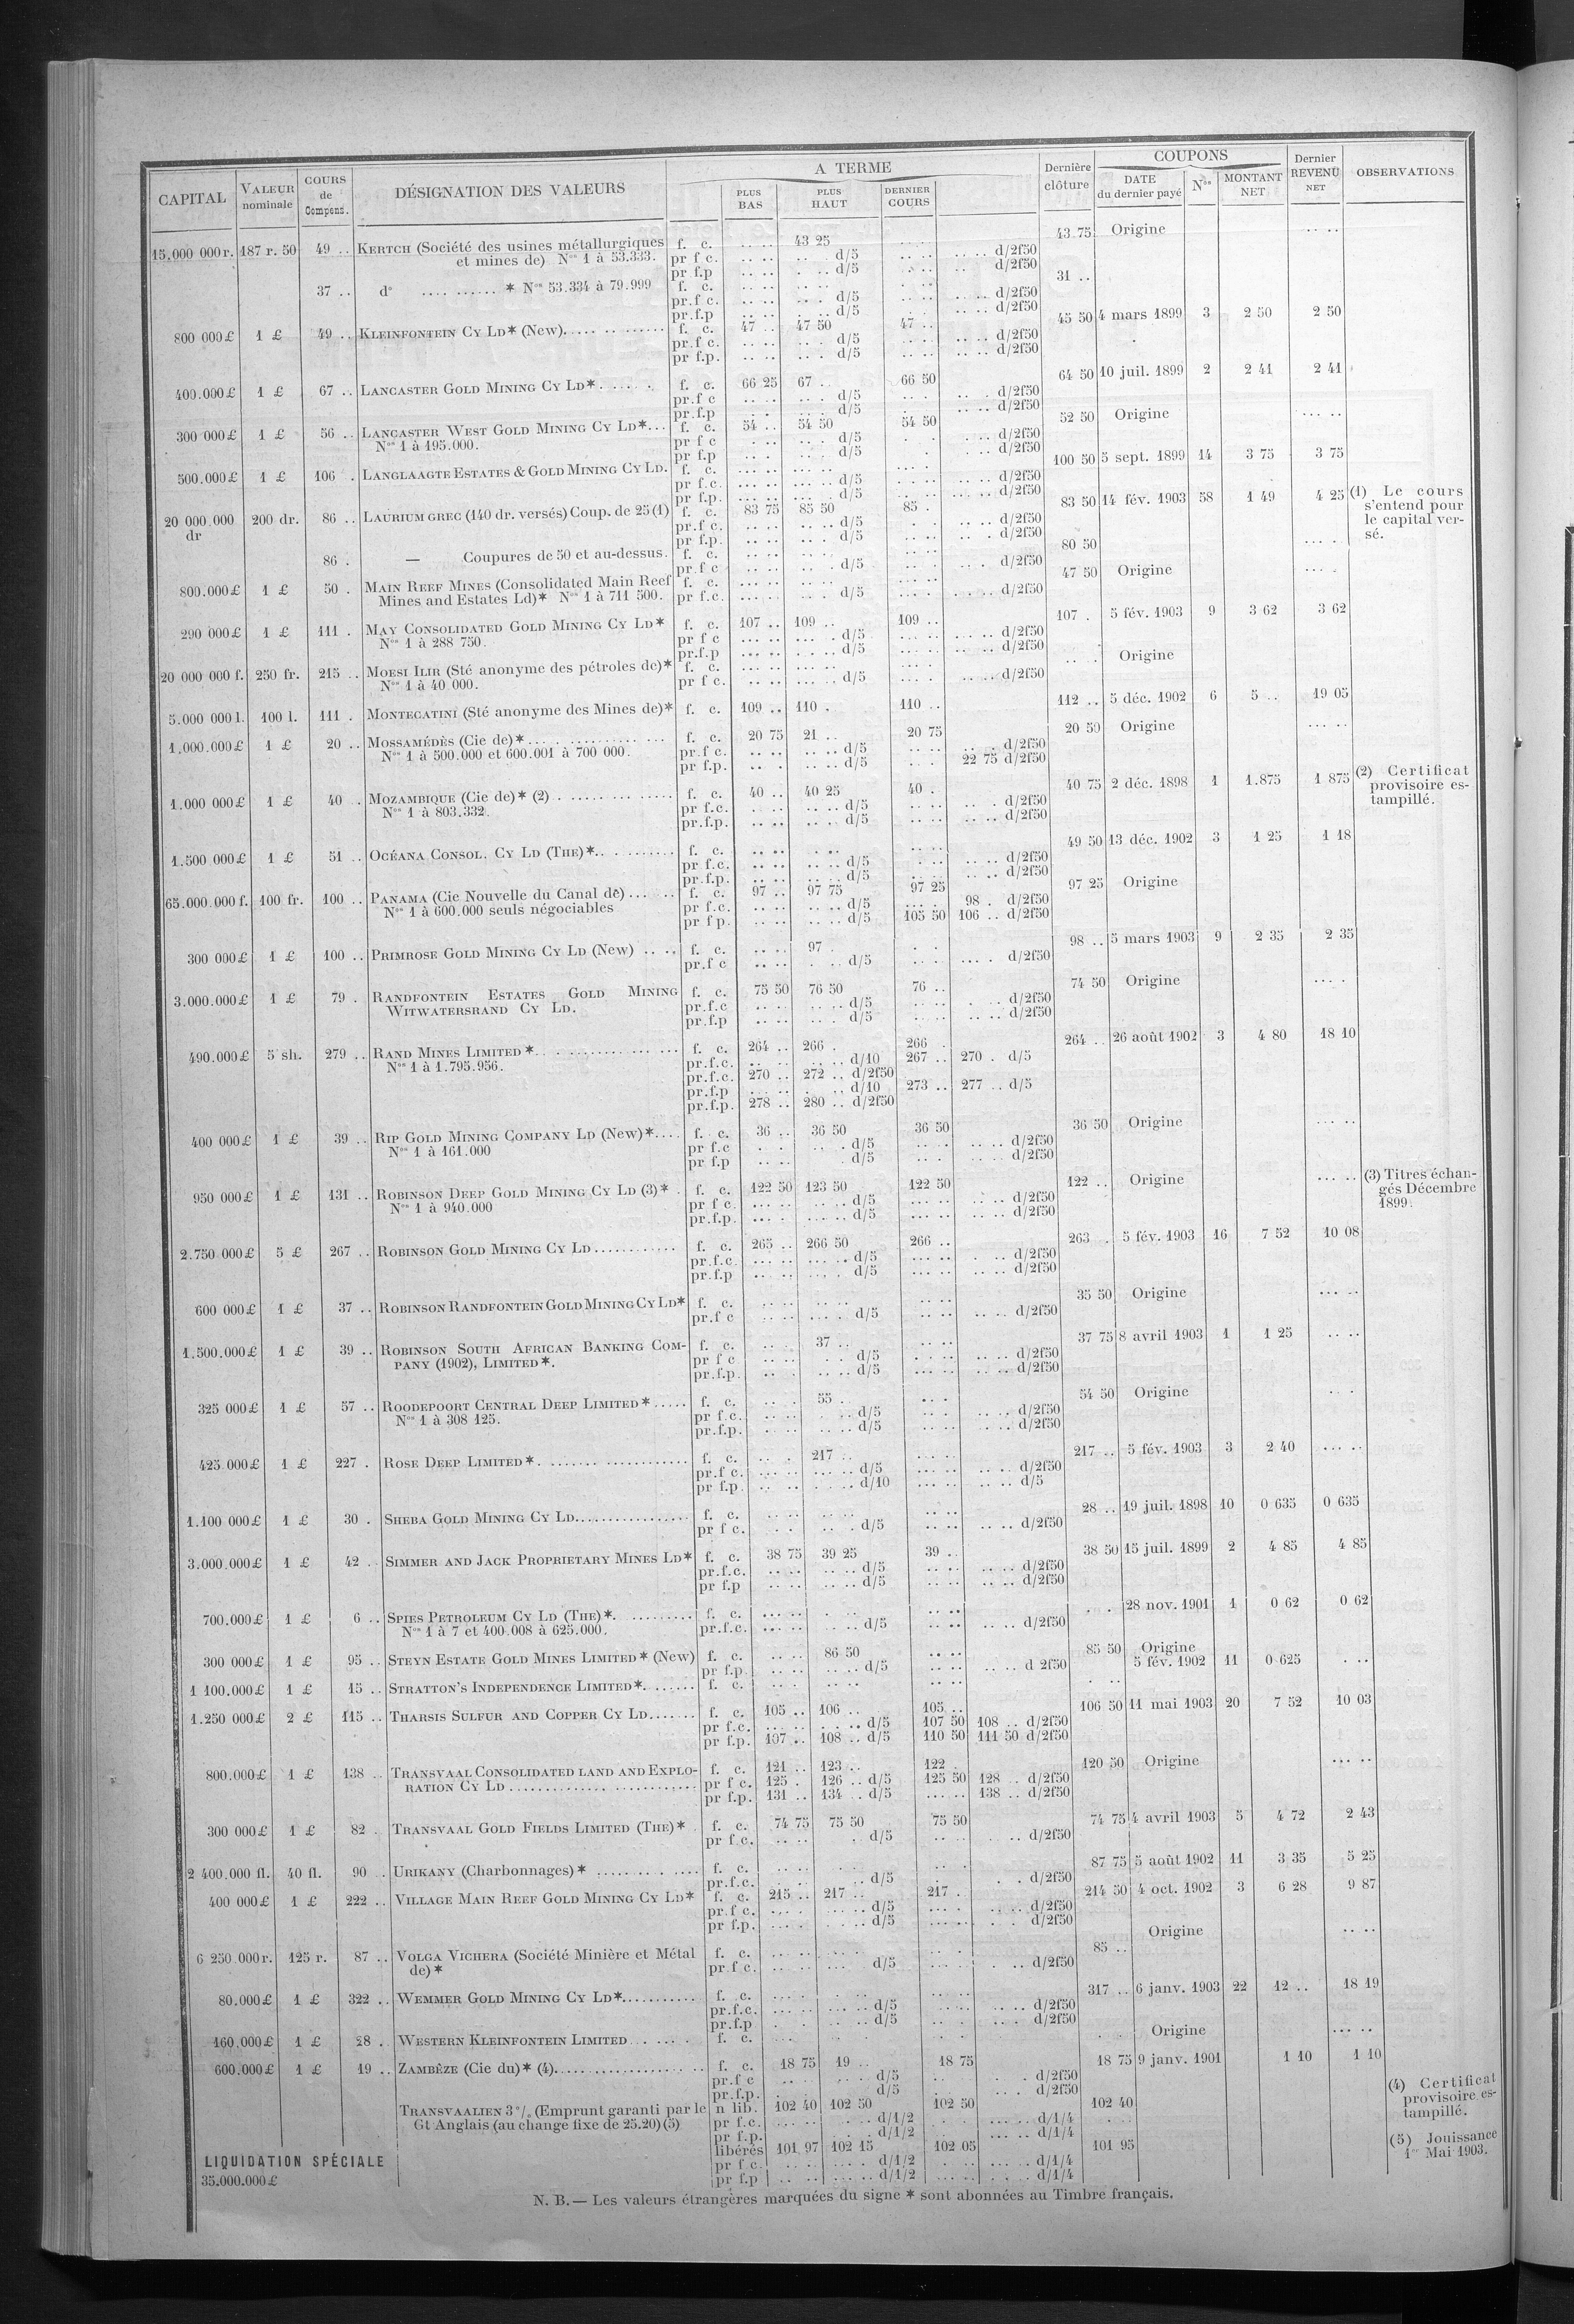 CAPITAL VALEUR nominale COURS de Compens. DÉSIGNATION DES VALEURS A TERME PLUS BAS PLUS HAUT DERNIER COURS Dernière clôture COUPONS DATE du dernier payé Nos MONTANT NET Dernier REVENU NET OBSERVATIONS
15.000 000 r. 187 r. 50 49 .. KERTCH (Société des usines métallurgiques f. c. .. .. 43 25 .. .. 43 75 Origine .. ..
et mines de) Nos 1 à 53.333. pr f c. .. .. .. . d/5 .. .. .. .. d/2f50
pr f.p .. .. . .. d/5 . .. .. d/2f50
37 .. do .... .......... * Nos 53.334 à 79.999 f. c. .. .. .. .. . .. 31 ..
pr.f c. .. .. .. . d/5 .. .. .. .. d/2f50
pr.f.p .. .. .. .. d/5 . .. .. .. d/2f50
800 000 £ 1 £ 49 .. KLEINFONTEIN CY LD* (New)..... .. ....... f. c. 47 .. 47 50 47 .. 45 50 4 mars 1899 3 2 50 2 50
pr.f c. .. .. .. . d/5 .. .. .. .. d/2f50
pr f.p. .. .. .. . d/5 .. .. .. .. d/2f50
400.000 £ 1 £ 67 .. LANCASTER GOLD MINING CY LD*...... . f. c. 66 25 67 .. 66 50 64 50 10 juil. 1899 2 2 41 2 41
pr.f c .. .. .. . d/5 .. . .. . d/2f50
pr.f.p . . .. . d/5 .. .. d/2f50
300 000 £ 1 £ 56 .. LANCASTER WEST GOLD MINING CY LD*... f. c. 54 .. 54 50 54 50 52 50 Origine ... ..
Nos 1 à 195.000. pr f c . .. .. . d/5 . . . .. d/2f50
pr f.p .. . .. . d/5 . . .. d/2f50
500.000 £ 1 £ 106 . LANGLAAGTE ESTATES & GOLD MINING CY LD. f. c. ... .. ... .. ... . 100 50 5 sept. 1899 14 3 75 3 75
pr f.c. ... .. ... . d/5 .. . .. .. d/2f50
pr f.p. ... .. ... . d/5 .. .. ... .. d/2f50
20 000.000 dr 200 dr. 86 .. LAURIUM GREC (140 dr. versés) Coup. de 25 (1) f. c. 83 75 85 50 85 . 83 50 14 fév. 1903 58 1 49 4 25 (1) Le cours s'entend pour le capital versé.
pr.f c. .. .. .. .. d/5 . . .. .. d/2f50
pr f.p. .. .. .. .. d/5 .. .. .. . d/2f50
86 . — Coupures de 50 et au-dessus. f. c. .. .. .. .. .. .. 80 50 ... .
pr.f c .. .. .. . d/5 .. . .. . d/2f50
800.000 £ 1 £ 50 . MAIN REEF MINES (Consolidated Main Reef f. c. ... .. .. .. .. .. 47 50 Origine ... .
Mines and Estates Ld)* Nos 1 à 711 500. pr f.c. ... .. .. . d/5 ... . .. .. d/2f50
290 000 £ 1 £ 111 . MAY CONSOLIDATED GOLD MINING CY LD* f. c. 107 .. 109 .. 109 .. 107 . 5 fév. 1903 9 3 62 3 62
Nos 1 à 288 750. pr f c ... .. ... . d/5 ... .. ... .. d/2f50
pr.f.p ... .. ... .. d/5 ... .. .. .. d/2f50
20 000 000 f. 250 fr. 215 .. MOESI ILIR (Sté anonyme des pétroles de)* f. c. ... .. ... .. ... . .. . Origine
Nos 1 à 40 000. pr f c. .. .. ... .. d/5 ... . .. .. d/2f50
5.000 000 l. 100 l. 111 . MONTECATINI (Sté anonyme des Mines de)* f. c. 109 .. 110 . 110 .. 112 .. 5 déc. 1902 6 5 .. 19 05
1,000.000 £ 1 £ 20 .. MOSSAMÉDÈS (Cie de)*... ............ ... f. c. 20 75 21 .. 20 75 20 50 Origine ... ..
Nos 1 à 500.000 et 600.001 à 700 000. pr.f c. .. .. .. .. d/5 .. .. .. . d/2f50
pr f.p. .. . .. .. d/5 .. . 22 75 d/2f50
1.000 000 £ 1 £ 40 . MOZAMBIQUE (Cie de)* (2) . ............... f. c. 40 .. 40 25 40 . 40 75 2 déc. 1898 1 1.875 1 875 (2) Certificat provisoire estampillé.
Nos 1 à 803.332. pr f.c. . .. .. .. d/5 .. .. .. . d/2f50
pr.f.p. .. .. .. .. d/5 .. .. .. .. d/2f50
1.500 000 £ 1 £ 51 .. OCÉANA CONSOL. CY LD (THE)*.. .......... f. c. .. .. . .. .. .. 49 50 13 déc. 1902 3 1 25 1 18
pr f.c. .. .. .. .. d/5 . .. .. .. d/2f50
pr.f.p. .. .. .. .. d/5 .. . .. .. d/2f50
65.000.000 f. 100 fr. 100 .. PANAMA (Cie Nouvelle du Canal de)... .. f. c. 97 .. 97 75 97 25 97 25 Origine
Nos 1 à 600.000 seuls négociables pr f.c. .. .. .. .. d/5 ... . 98 . d/2f50
pr f p. .. .. .. .. d/5 105 50 106 .. d/2f50
300 000 £ 1 £ 100 .. PRIMROSE GOLD MINING CY LD (New) .. .. f. c. .. . 97 . . . 98 .. 5 mars 1903 9 2 35 2 35
pr.f c .. .. . .. d/5 .. .. ... . d/2f50
3.000.000 £ 1 £ 79 . RANDFONTEIN ESTATES GOLD MINING f. c. 75 50 76 50 76 .. 74 50 Origine ... .
WITWATERSRAND CY LD. pr.f.c .. .. .. .. d/5 .. .. . .. d/2f50
pr.f.p .. .. .. . d/5 .. .. .. .. d/2f50
490.000 £ 5 sh. 279 .. RAND MINES LIMITED*.. . .............. ... f. c. 264 .. 266 . 266 . 264 .. 26 août 1902 3 4 80 18 10
Nos 1 à 1.795.956. pr.f.c. .. .. .. d/10 267 .. 270 . d/5
pr.f.c. 270 .. 272 .. d/2f50
pr.f.p ... .. . .. d/10 273 .. 277 .. d/5
pr.f.p. 278 .. 280 .. d/2f50
400 000 £ 1 £ 39 .. RIP GOLD MINING COMPANY LD (New)*.... f. c. 36 .. 36 50 36 50 36 50 Origine ... ..
Nos 1 à 161.000 pr f.c . . .. . d/5 .. . .. .. d/2f50
pr f.p .. .. . d/5 .. . .. .. d/2f50
950 000 £ 1 £ 131 .. ROBINSON DEEP GOLD MINING CY LD (3)* . f. c. 122 50 123 50 122 50 122 .. Origine ... .. (3) Titres échangés Décembre 1899.
Nos 1 à 940.000 pr f c. ... .. .. .. d/5 ... .. .. .. d/2f50
pr.f.p. ... . ... .. d/5 ... .. .. .. d/2f50
2.750 000 £ 5 £ 267 .. ROBINSON GOLD MINING CY LD............ f. c. 265 .. 266 50 266 .. 263 . 5 fév. 1903 16 7 52 10 08
pr.f.c. ... .. ... .. d/5 ... .. . .. d/2f50
pr.f.p .. .. ... . d/5 ... .. .. .. d/2f50
600 000 £ 1 £ 37 .. ROBINSON RANDFONTEIN GOLD MINING CY LD* f. c. .. .. .. .. .. .. 35 50 Origine ... ..
pr.f c .. .. ... . d/5 .. .. .. .. d/2f50
1.500.000 £ 1 £ 39 .. ROBINSON SOUTH AFRICAN BANKING COM- f. c. .. . 37 .. .. .. 37 75 8 avril 1903 1 1 25 .. ..
PANY (1902), LIMITED*. pr f c .. .. . . d/5 . .. .. .. d/2f50
pr.f.p. .. . .. .. d/5 .. .. .. .. d/2f50
325 000 £ 1 £ 57 .. ROODEPOORT CENTRAL DEEP LIMITED*..... f. c. .. . 55 .. .. . 54 50 Origine .. .
Nos 1 à 308 125. pr f.c. .. .. . .. d/5 .. . .. .. d/2f50
pr.f.p. . .. .. .. d/5 .. .. . .. d/2f50
425.000 £ 1 £ 227 . ROSE DEEP LIMITED*. ....... ............ f. c. .. . 217 .. ... .. 217 .. 5 fév. 1903 3 2 40 ... ..
pr.f c. ... .. ... .. d/5 ... .. .. .. d/2f50
pr f.p .. .. . .. d/10 ... .. .. .. d/5
1.100 000 £ 1 £ 30 . SHEBA GOLD MINING CY LD................ f. c. .. .. .. .. .. .. 28 .. 19 juil. 1898 10 0 635 0 635
pr f c. .. . .. . d/5 .. .. .. .. d/2f50
3.000.000 £ 1 £ 42 . SIMMER AND JACK PROPRIETARY MINES LD* f. c. 38 75 39 25 39 .. 38 50 15 juil. 1899 2 4 85 4 85
pr.f.c. .. .. .. .. d/5 .. .. .. .. d/2f50
pr f.p .. .. .. .. d/5 .. .. .. .. d/2f50
700.000 £ 1 £ 6 .. SPIES PETROLEUM CY LD (THE)*. ......... f. c. ... .. . .. .. .. . . 28 nov. 1901 1 0 62 0 62
Nos 1 à 7 et 400.008 à 625.000. pr.f.c. ... .. .. .. d/5 .. .. .. .. d/2f50
300 000 £ 1 £ 95 .. STEYN ESTATE GOLD MINES LIMITED* (New) f. c. .. .. 86 50 .. .. 85 50 Origine
pr f.p. .. .. .. .. d/5 .. .. .. .. d 2f50 5 fév. 1902 11 0 625 . ..
1 100.000 £ 1 £ 15 .. STRATTON'S INDEPENDENCE LIMITED*. ...... f. c. . .. .. .. .. .. . ..
1.250 000 £ 2 £ 115 .. THARSIS SULFUR AND COPPER CY LD....... f. c. 105 .. 106 .. 105 .. 106 50 11 mai 1903 20 7 52 10 03
pr f.c. ... .. . .. d/5 107 50 108 .. d/2f50
pr f.p. 107 .. 108 .. d/5 110 50 111 50 d/2f50
800.000 £ 1 £ 138 .. TRANSVAAL CONSOLIDATED LAND AND EXPLO- f. c. 121 .. 123 .. 122 . 120 50 Origine ... ..
RATION CY LD .............. ............ pr f c. 125 . 126 .. d/5 125 50 128 .. d/2f50
pr f.p. 131 .. 134 .. d/5 ... .. 138 .. d/2f50
300 000 £ 1 £ 82 . TRANSVAAL GOLD FIELDS LIMITED (THE)* . f. c. 74 75 75 50 75 50 74 75 4 avril 1903 5 4 72 2 43
pr f.c. .. .. . d/5 .. . . .. d/2f50
2 400.000 fl. 40 fl. 90 . URIKANY (Charbonnages)* .......... .... f. c. .. .. . . .. . 87 75 5 août 1902 11 3 35 5 25
pr.f.c. . .. .. d/5 . . . d/2f50
400 000 £ 1 £ 222 .. VILLAGE MAIN REEF GOLD MINING CY LD* f. c. 215 .. 217 .. 217 . 214 50 4 oct. 1902 3 6 28 9 87
pr.f c. ... . .. .. d/5 ... .. ... .. d/2f50
pr f.p. ... . . .. d/5 ... . . . d/2f50
6 250.000 r. 125 r. 87 .. VOLGA VICHERA (Société Minière et Métal f. c. ... .. .. . .. . 85 .. Origine .. ..
de)* pr f c. .. .. ... d/5 ... . . .. d/2f50
80.000 £ 1 £ 322 .. WEMMER GOLD MINING CY LD*........... f. c. ... . . .. .. .. 317 .. 6 janv. 1903 22 12 .. 18 19
pr.f.c. ... .. ... .. d/5 .. .. .. .. d/2f50
pr.f.p . . .. .. d/5 .. . .. . d/2f50
160.000 £ 1 £ 28 . WESTERN KLEINFONTEIN LIMITED. . ... . f. c. ... . . . . . . Origine ... ..
600.000 £ 1 £ 19 .. ZAMBÈZE (Cie du)* (4)..................... f. c. 18 75 19 .. 18 75 18 75 9 janv. 1901 1 10 1 10
pr.f c .. .. .. . d/5 .. . . d/2f50
pr.f.p. . .. d/5 . .. . d/2f50 (4) Certificat provisoire estampillé.
TRANSVAALIEN 3 % (Emprunt garanti par le n lib. 102 40 102 50 102 50 102 40
Gt Anglais (au change fixe de 25.20) (5) pr f.c. ... .. . . d/1/2 . .. ... .. d/1/4
pr f.p. . . d/1/2 . ... .. d/1/4 (5) Jouissance 1er Mai 1903.
libérés 101 97 102 15 102 05 101 95
LIQUIDATION SPÉCIALE pr f c. .. .. .. . d/1/2 . .. ... .. d/1/4
35.000.000 £ pr f.p .. .. ... .. d/1/2 ... .. . .. d/1/4
N. B.— Les valeurs étrangères marquées du signe * sont abonnées au Timbre français.